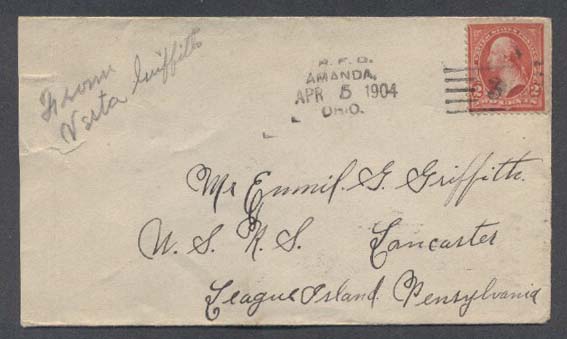 From
Vesta Griffith
R.F.D.
AMANDA,
APR 5 1904
OHIO.
2 2
TWO CENTS
Mr Emmil. G. Griffith.
U. S. R. S. Lancaster
League Island. Pensylvania